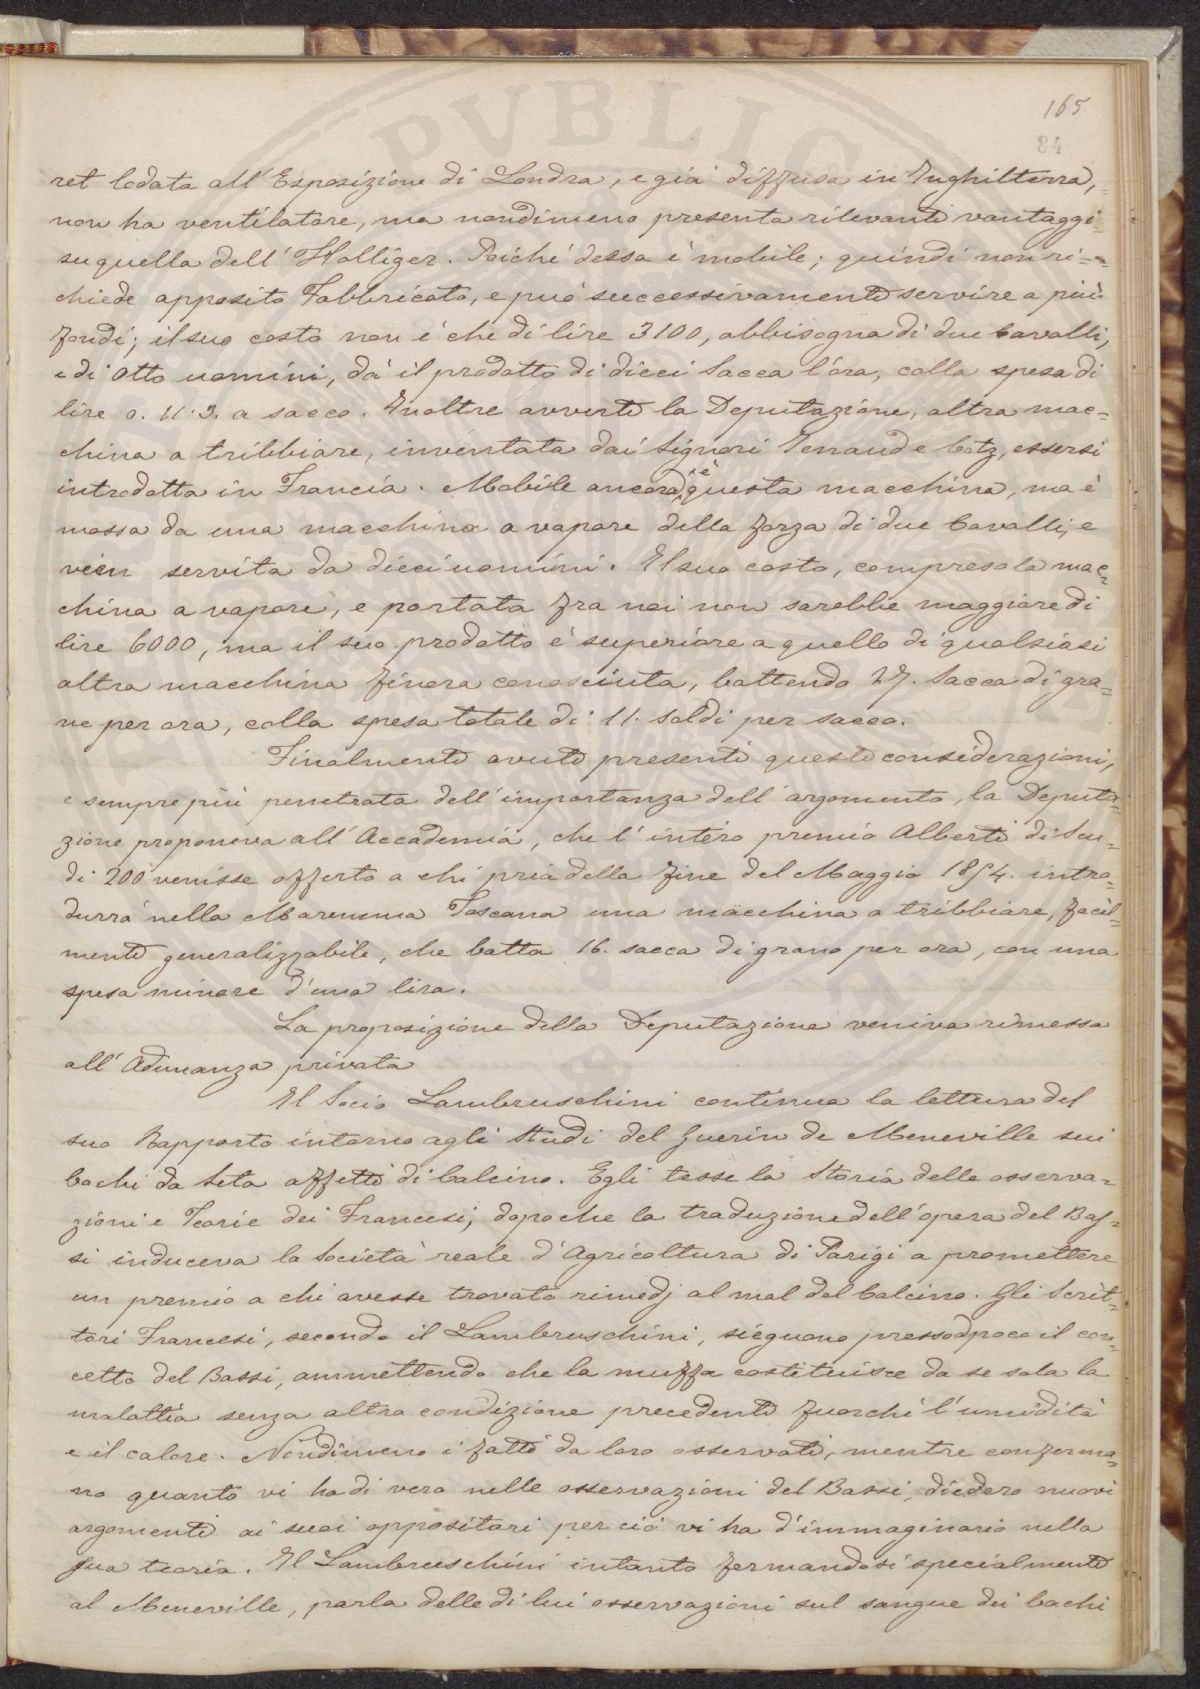 165
84
ret lodata all'Esposizione di Londra, e già diffusa in Inghilterra,
non ha ventilatore, ma nondimeno presenta rilevanti vantaggi
su quella dell'Holliger. Poiché dessa è mobile; quindi non ri=
chiede apposito Fabbricato, e può successivamente servire a più
fondi; il suo costo non è che di lire 3100, abbisogna di due Cavalli,
e di otto uomini, dà il prodotto di dieci Sacca l'ora, colla spesa di
lire 0. 11. 3. a sacco. Inoltre avverte la Deputazione, altra mac=
china a tribbiare, inventata dai Signori Renaud e Lotz, essersi
introdotta in Francia. Mobile ancora è questa macchina, ma è
mossa da una macchina a vapore della forza di due Cavalli, e
vien servita da dieci uomini. Il suo costo, compresa la mac=
china a vapore, e portata fra noi non sarebbe maggiore di
lire 6000, ma il suo prodotto è superiore a quello di qualsiasi
altra macchina finora conosciuta, battendo 27. Sacca di gra=
no per ora, colla spesa totale di 11. soldi per sacco.
Finalmente avute presenti queste considerazioni,
e sempre più penetrata dell'importanza dell'argomento, la Deputa=
zione proponeva all'Accademia, che l'intero premio Alberti di Scu=
di 200 venisse offerto a chi pria della fine del Maggio 1854. intro=
durrà nella Maremma Toscana una macchina a tribbiare, facil=
mente generalizzabile, che batta 16. sacca di grano per ora, con una
spesa minore d'una lira.
La proposizione della Deputazione veniva rimessa
all'Adunanza privata
Il Socio Lambruschini continua la lettura del
suo Rapporto intorno agli Studi del Guerin de Meneville sui
bachi da Seta affetti di Calcino. Egli tesse la Storia delle osserva=
zioni e Teorie dei Francesi, dopo che la traduzione dell'opera del Bas=
si induceva la Società reale d'Agricoltura di Parigi a promettere
un premio a chi avesse trovato rimedj al mal del Calcino. Gli Scrit=
tori Francesi, secondo il Lambruschini, sieguono pressodpoco il con=
cetto del Bassi, ammettendo che la muffa costituisce da se sola la
malattia senza altra condizione precedente fuorché l'umidità
e il calore. Nondimeno i fatti da loro osservati, mentre conferma=
no quanto vi ha di vero nelle osservazioni del Bassi, diedero nuovi
argomenti ai suoi oppositori per ciò vi ha d'immaginario nella
sua teoria. Il Lambruschini intanto fermandosi specialmente
al Meneville, parla delle di lui osservazioni sul sangue dei bachi